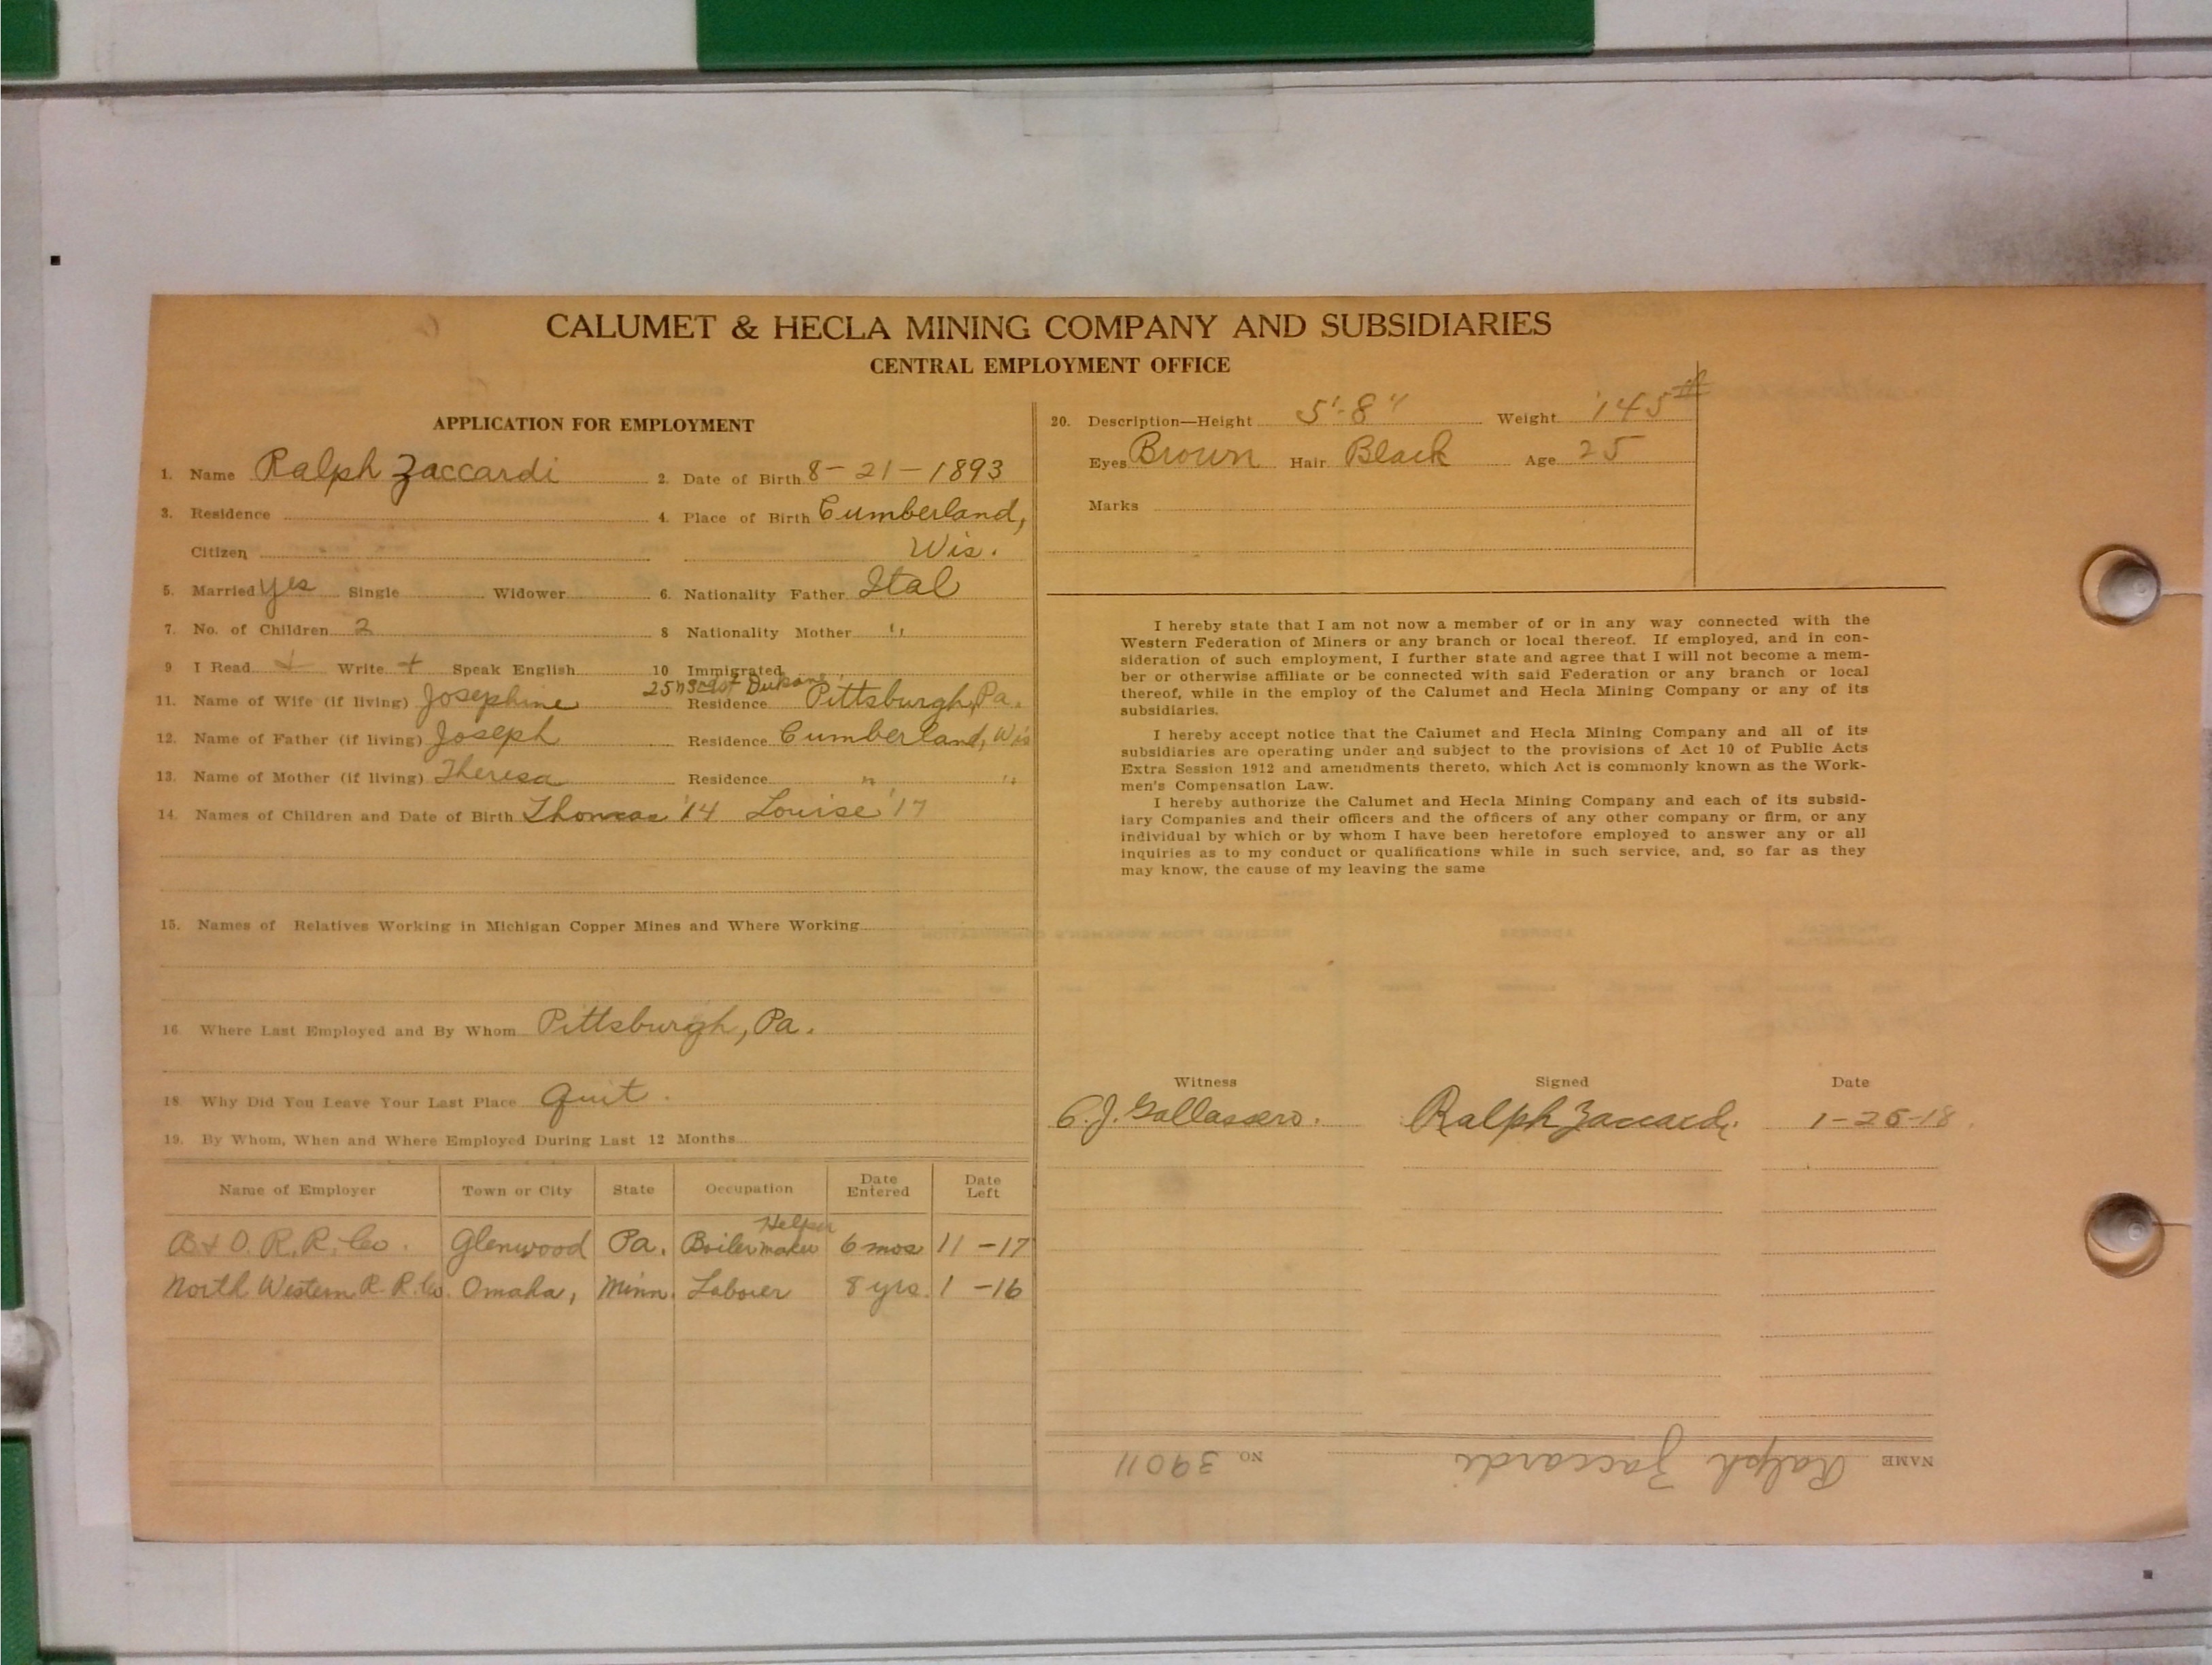 CALUMET & HECLA MINING COMPANY AND SUBSIDIARIES
CENTRAL EMPLOYMENT OFFICE
APPLICATION FOR EMPLOYMENT
1. Name Ralph Zaccardi 2. Date of Birth 8-21-1893
3. Residence 4. Place of Birth Cumberland,
Citizen Wis.
5. Married Yes Single Widower 6. Nationality Father Ital
7. No. of Children 2 8 Nationality Mother "
9 I Read + Write + Speak English 10 Immigrated
11. Name of Wife (if living) Josephine Residence Pittsburgh, Pa.
12. Name of Father (if living) Joseph Residence Cumberland, Wis
13. Name of Mother (if living) Theresa Residence " "
14. Names of Children and Date of Birth Thomas '14 Louise '17
15. Names of Relatives Working in Michigan Copper Mines and Where Working
16. Where Last Employed and By Whom Pittsburgh, Pa.
18. Why Did You Leave Your Last Place Quit.
19. By Whom, When and Where Employed During Last 12 Months
Name of Employer Town or City State Occupation Date Entered Date Left
B & O. R. R. Co. Glenwood Pa. Boilermaker Helper 6 mos 11-17
North Western R. R. Co. Omaha, Minn. Laborer 8 yrs. 1-16
20. Description—Height 5'-8" Weight 145#
Eyes Brown Hair Black Age 25
Marks
I hereby state that I am not now a member of or in any way connected with the
Western Federation of Miners or any branch or local thereof. If employed, and in con-
sideration of such employment, I further state and agree that I will not become a mem-
ber or otherwise affiliate or be connected with said Federation or any branch or local
thereof, while in the employ of the Calumet and Hecla Mining Company or any of its
subsidiaries.
I hereby accept notice that the Calumet and Hecla Mining Company and all of its
subsidiaries are operating under and subject to the provisions of Act 10 of Public Acts
Extra Session 1912 and amendments thereto, which Act is commonly known as the Work-
men's Compensation Law.
I hereby authorize the Calumet and Hecla Mining Company and each of its subsid-
iary Companies and their officers and the officers of any other company or firm, or any
individual by which or by whom I have been heretofore employed to answer any or all
inquiries as to my conduct or qualifications while in such service, and, so far as they
may know, the cause of my leaving the same
Witness Signed Date
Ralph Zaccardi 1-26-18
NAME Ralph Zaccardi NO. 39011